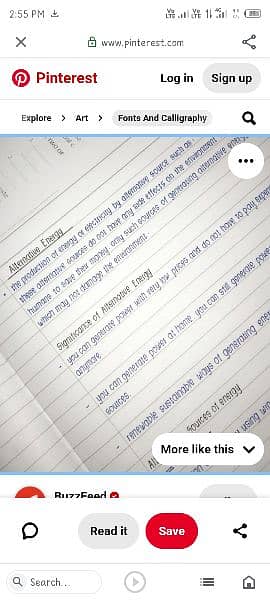 2:55 PM
www.pinterest.com
Pinterest
Log in
Sign up
Explore
Art
Fonts And Calligraphy
Alternative Energy
the production of energy or electricity by alternative source such as
these alternative sources do not have any side effects on the environment
humans to save their money. any such sources of generating alternative energy
which may not damage the environment.
Significance of Alternative Energy
- you can generate power with very low prices and do not have to pay
anymore
- you can generate power at home. you can still generate power
sources.
- renewable sustainable ways of generating
sources of energy
using
More like this
BuzzFeed
Read it
Save
Search...